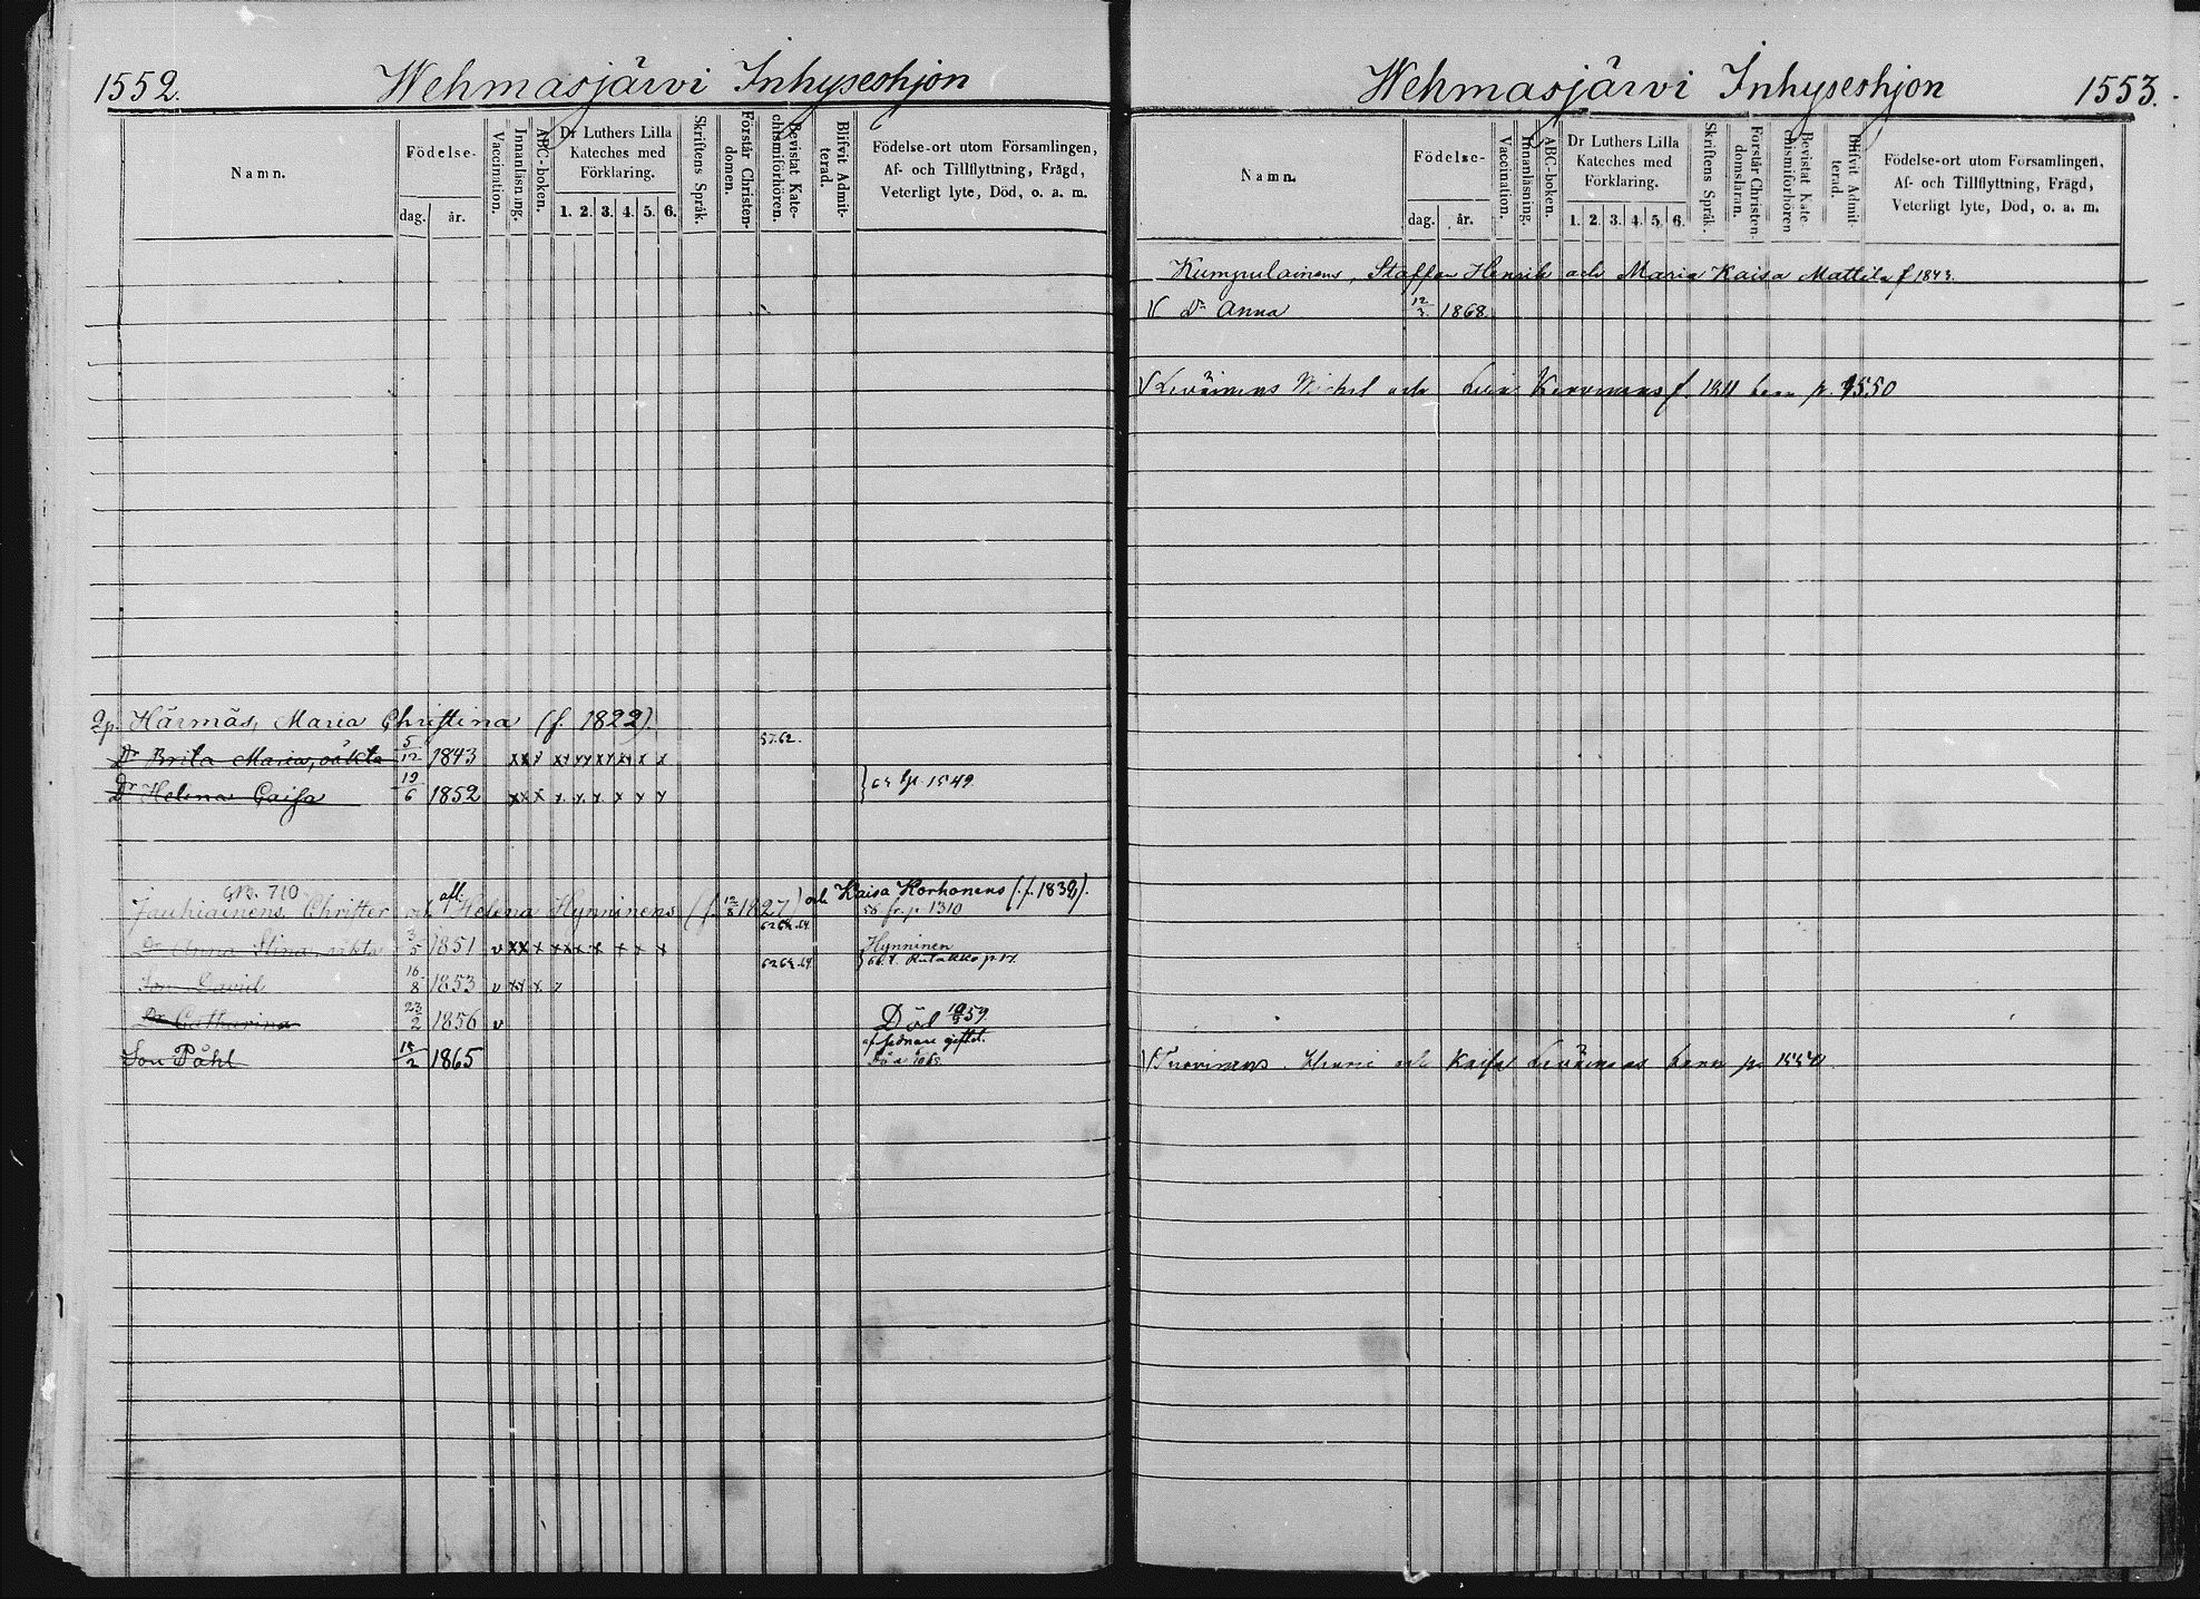 1552. Wehmasjärvi Inhyseshjon
Namn.
Födelse-
dag. år.
Vaccination.
Innanläsning.
ABC-boken.
Dr Luthers Lilla
Kateches med
Förklaring.
1. 2. 3. 4. 5. 6.
Skriftens Språk.
Förstår Christen-
domen.
Bevistat Kate-
chismiförhören.
Blifvit Admit-
terad.
Födelse-ort utom Församlingen,
Af- och Tillflyttning, Frägd,
Veterligt lyte, Död, o. a. m.
Härmäs, Maria Christina (f. 1822).
57.62.
Dr Brita Maria, oäkta 5/12 1843 x x x x x x x x x
Dr Helena Caisa 19/6 1852 x x x x x x x x x 1549
710
Jauhiainens Christer och afl. Helena Hynninens (f. 12/8 1827) och Kaisa Korhonens (f. 1839).
56 fr. p. 1310
Dr Anna Stina, oäkta 3/5 1851 v x x x x x x x x x Hynninen
Son David 16/8 1853 v x x x
Dr Catharina 23/2 1856 v Död 59
Son Påhl 2 1865
Wehmasjärvi Inhyseshjon 1553.
Namn.
Födelse-
dag. år.
Vaccination.
Innanläsning.
ABC-boken.
Dr Luthers Lilla
Kateches med
Förklaring.
1. 2. 3. 4. 5. 6.
Skriftens Språk.
Förstår Christen-
domsläran.
Bevistat Kate-
chismiförhören
Blifvit Admit-
terad.
Födelse-ort utom Församlingen,
Af- och Tillflyttning, Frägd,
Veterligt lyte, Död, o. a. m.
Kumpulainens, Staffan Henrik och Maria Kaisa Mattila f 1843.
V Dr Anna 12 1868
V Michel och f. 1811 barn p. 1550
V Turvinens och Kaisa barn p.